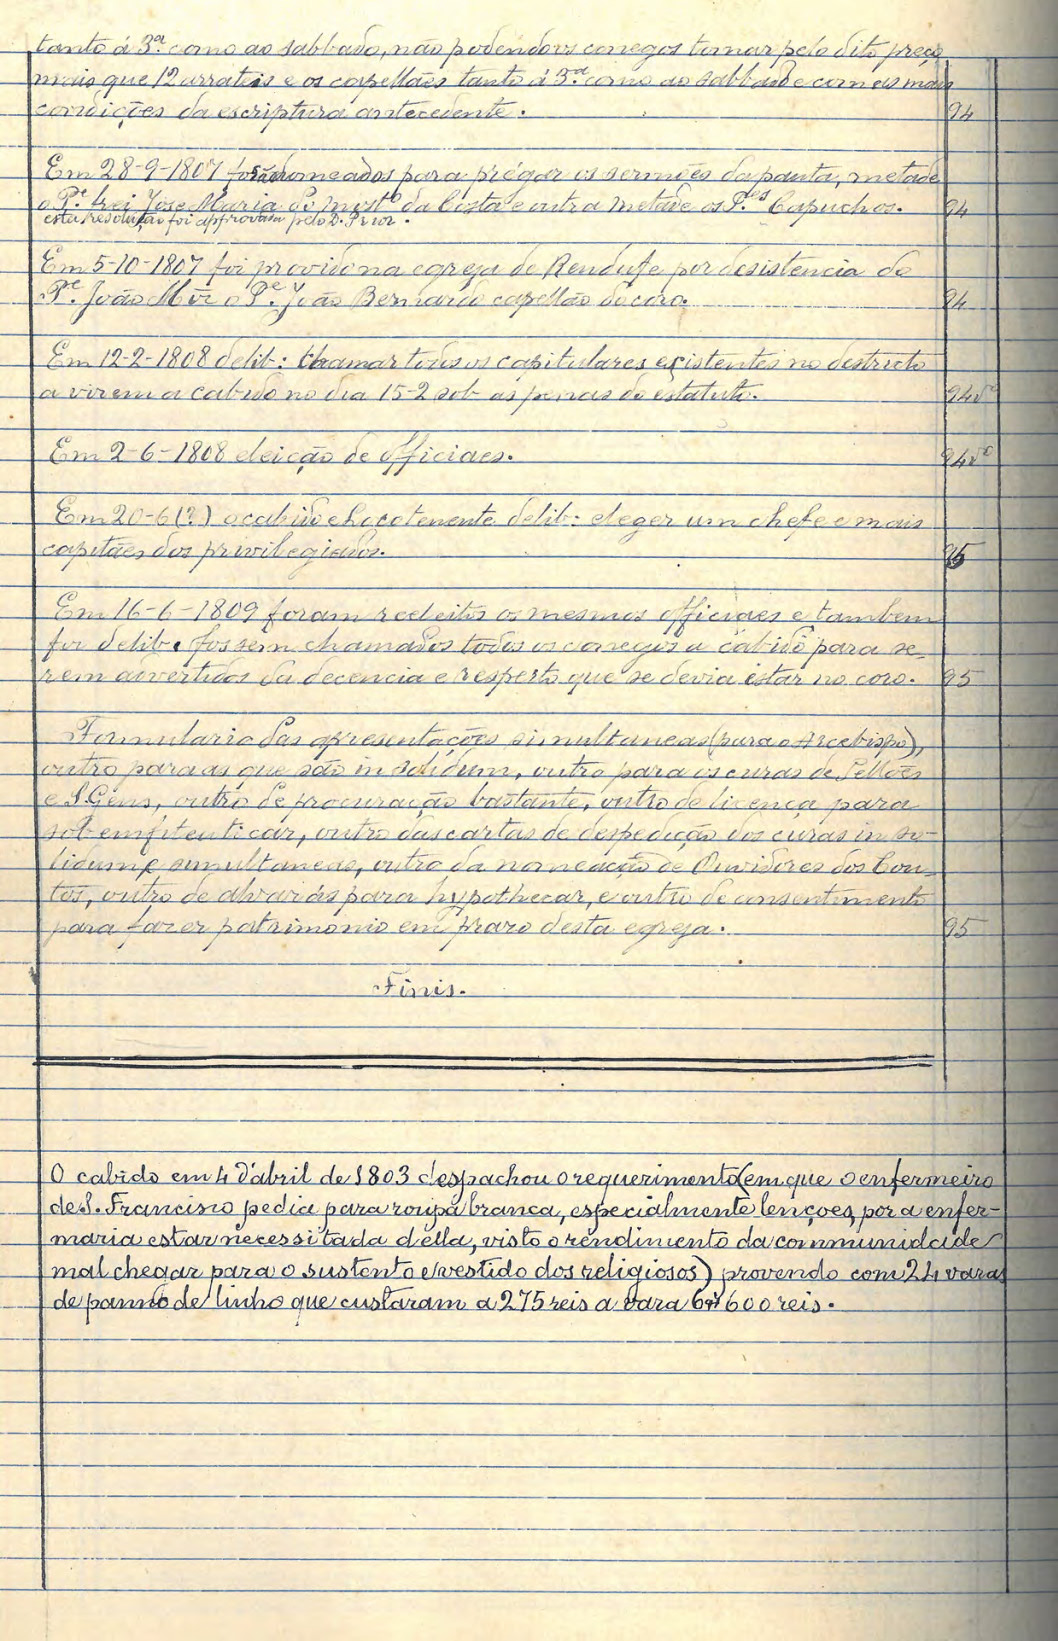 tanto á 3ª como ao sabbado, não podendo os conegos tomar pelo dito preço
mais que 12 arrateis e os capellães tanto á 3ª como ao sabbado e com as mais
condições da escriptura antecedente. 94
Em 28-9-1807 foram nomeados para prégar os sermões da pauta, metade
o Pe. frei José Maria do Mostº da Costa e outra metade os P.es Capuchos. 94
esta resolução foi approvada pelo D. Prior.
Em 5-10-1807 foi provido na egreja de Rendufe por desistencia do
Pe. João Miz o Pe. João Bernardo capellão do coro. 94
Em 12-2-1808 delib: chamar todos os capitulares existentes no destricto
a virem a cabido no dia 15-2 sob as penas do estatuto. 94vº
Em 2-6-1808 eleição de officiaes. 94vº
Em 20-6 (?) o cabido e locotenente delib: eleger um chefe e mais
capitães dos privilegiados. 95
Em 16-6-1809 foram reeleitos os mesmos officiaes e tambem
foi delib. fossem chamados todos os conegos a cabido para se-
rem advertidos da decencia e respeito que se devia estar no coro. 95
Formulario das apresentações simultaneas (para o Arcebispo),
outro para as que são in solidum, outro para os curas de Sellões
e S. Gens, outro de procuração bastante, outro de licença para
sobemfitenticar, outro das cartas de despedição dos curas in so-
lidum e simultaneas, outro da nomeação de Ouvidores dos Cou-
tos, outro de alvarás para hypothecar, e outro de consentimento
para fazer patrimonio em prazo desta egreja. 95
Finis.
O cabido em 4 d'abril de 1803 despachou o requerimento (em que o enfermeiro
de S. Francisco pedia para roupa branca, especialmente lençoes, por a enfer-
maria estar necessitada d'ella, visto o rendimento da communidade
mal chegar para o sustento e vestido dos religiosos) provendo com 24 varas
de panno de linho que custaram a 275 reis a vara 6$600 reis.